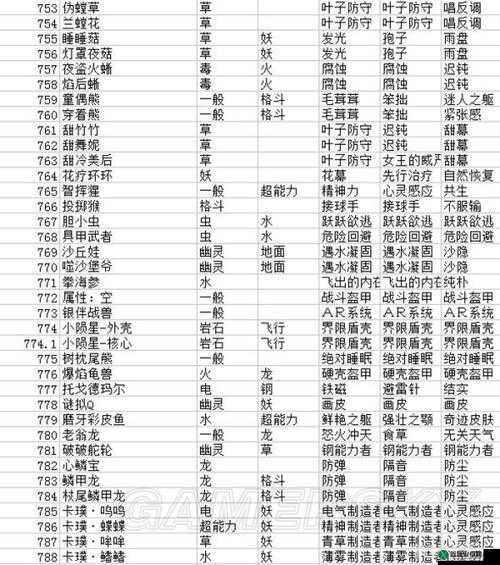 753 伪螳草 草 叶子防守 叶子防守 唱反调
754 兰螳花 草 叶子防守 叶子防守 唱反调
755 睡睡菇 草 妖 发光 孢子 雨盘
756 灯罩夜菇 草 妖 发光 孢子 雨盘
757 夜盗火蜥 毒 火 腐蚀 腐蚀 迟钝
758 焰后蜥 毒 火 腐蚀 腐蚀 迟钝
759 童偶熊 一般 格斗 毛茸茸 笨拙 迷人之躯
760 穿着熊 一般 格斗 毛茸茸 笨拙 紧张感
761 甜竹竹 草 叶子防守 迟钝 甜幕
762 甜舞妮 草 叶子防守 迟钝 甜幕
763 甜冷美后 草 叶子防守 女王的威严 甜幕
764 花疗环环 妖 花幕 先行治疗 自然恢复
765 智挥猩 一般 超能力 精神力 心灵感应 共生
766 投掷猴 格斗 接球手 接球手 不服输
767 胆小虫 虫 水 跃跃欲逃 跃跃欲逃 跃跃欲逃
768 具甲武者 虫 水 危险回避 危险回避 危险回避
769 沙丘娃 幽灵 地面 遇水凝固 遇水凝固 沙隐
770 噬沙堡爷 幽灵 地面 遇水凝固 遇水凝固 沙隐
771 拳海参 水 飞出的内在 飞出的内在 纯朴
772 属性：空 一般 战斗盔甲 战斗盔甲 战斗盔甲
773 银伴战兽 一般 AR系统 AR系统 AR系统
774 小陨星-外壳 岩石 飞行 界限盾壳 界限盾壳 界限盾壳
774.1 小陨星-核心 岩石 飞行 界限盾壳 界限盾壳 界限盾壳
775 树枕尾熊 一般 绝对睡眠 绝对睡眠 绝对睡眠
776 爆焰龟兽 火 龙 硬壳盔甲 硬壳盔甲 硬壳盔甲
777 托戈德玛尔 电 钢 铁磁 避雷针 结实
778 谜拟Q 幽灵 妖 画皮 画皮 画皮
779 磨牙彩皮鱼 水 超能力 鲜艳之躯 强壮之颚 奇迹皮肤
780 老翁龙 一般 龙 怒火冲天 食草 无关天气
781 破破舵轮 幽灵 草 钢能力者 钢能力者 钢能力者
782 心鳞宝 龙 防弹 隔音 防尘
783 鳞甲龙 龙 格斗 防弹 隔音 防尘
784 杖尾鳞甲龙 龙 格斗 防弹 隔音 防尘
785 卡璞·鸣鸣 电 妖 电气制造者 电气制造者 心灵感应
786 卡璞·蝶蝶 超能力 妖 精神制造者 精神制造者 心灵感应
787 卡璞·哞哞 草 妖 青草制造者 青草制造者 心灵感应
788 卡璞·鳍鳍 水 妖 薄雾制造者 薄雾制造者 心灵感应